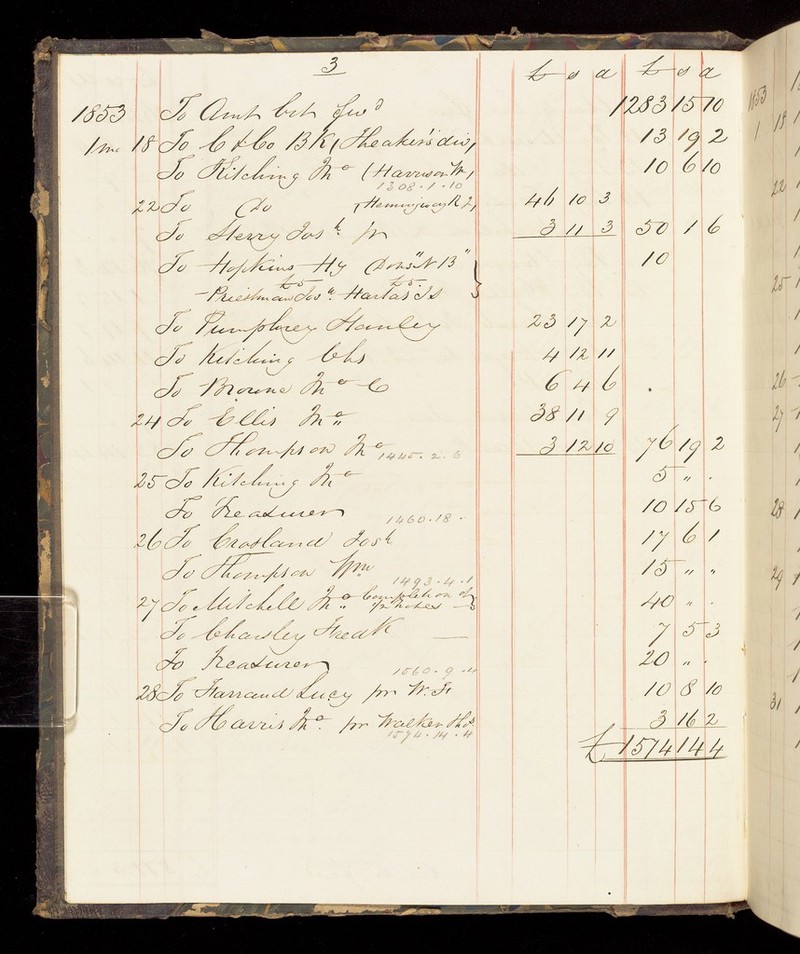 3
£ s d £ s d
1853 To Amt brt fwd 1283 15 10
1 mo 18 To C & Co BK (Heaker's div) 13 19 2
To Kitching Jno (Harrison Wm) 10 6 10
1308.1.10
22 To Do (Hemingway R L) 46 10 3
To Sterry Josh Jr 3 11 3 50 1 6
To Hopkins Hy Dons "N 13" 10
£5 £5
Priestman Josh. Harlas Is
To Pumphrey Stanley 23 17 2
To Kitching Chs 4 12 11
To Browne Jno C 6 4 6
24 To Ellis Jno 38 11 9
To Thompson Jno 1445.2.6 3 12 10 76 19 2
25 To Kitching Jno 5 " .
To Treasurer 1460.18. 10 15 6
26 To Crosland Josh 17 6 1
To Thompson Wm 1493.4.1 15 " "
27 To Mitchell Jno Completion of 40 " .
To Charsley Fredk 7 5 3
To Treasurer 1560.9.4 20 " .
28 To Farrand Lucy pr W. F. 10 8 10
To Harris Jno. pr Walker Thos 3 16 2
1574.14.4
£ 1574 14 4
1853
1 18
22
25
26
27
28
29
31